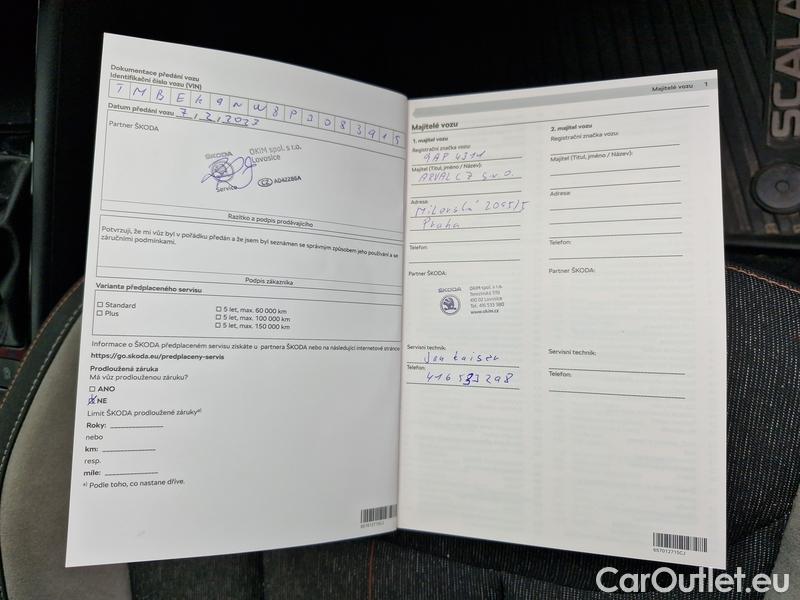 Dokumentace předání vozu
Identifikační číslo vozu (VIN)
T M B E K 9 N W 8 P 3 0 8 3 9 1 5
Datum předání vozu 7, 2, 2023
Partner ŠKODA
OKIM spol. s r.o.
Lovosice
ŠKODA
Service
CZ AD4228GA
Razítko a podpis prodávajícího
Potvrzuji, že mi vůz byl v pořádku předán a že jsem byl seznámen se správným způsobem jeho používání a se
záručními podmínkami.
Podpis zákazníka
Varianta předplaceného servisu
Standard
Plus
5 let, max. 60 000 km
5 let, max. 100 000 km
5 let, max. 150 000 km
Informace o ŠKODA předplaceném servisu získáte u partnera ŠKODA nebo na následující internetové stránce
https://go.skoda.eu/predplaceny-servis
Prodloužená záruka
Má vůz prodlouženou záruku?
ANO
NE
Limit ŠKODA prodloužené záruky a)
Roky:
nebo
km:
resp.
míle:
a) Podle toho, co nastane dříve.
657012715CJ
Majitelé vozu 1
Majitelé vozu
1. majitel vozu
Registrační značka vozu:
9AP 4311
Majitel (Titul, jméno / Název):
ARVAL CZ s.r.o.
Adresa:
Milevská 2095/5
Praha
Telefon:
Partner ŠKODA:
ŠKODA
OKIM spol. s r.o.
Terezínská 1119
410 02 Lovosice
Tel. 416 533 980
www.okim.cz
Servisní technik:
Jan Kaiser
Telefon:
416533298
2. majitel vozu
Registrační značka vozu:
Majitel (Titul, jméno / Název):
Adresa:
Telefon:
Partner ŠKODA:
Servisní technik:
Telefon:
657012715CJ
SCALA
CarOutlet.eu